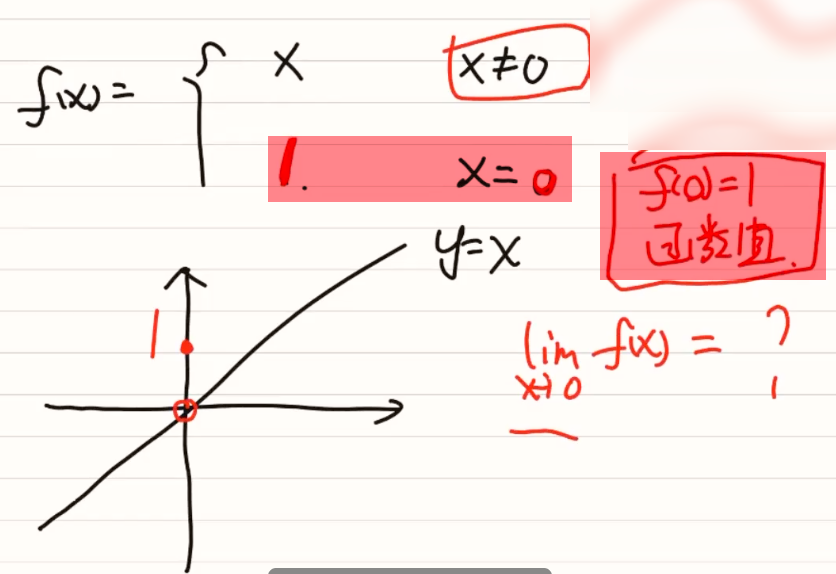 f(x) = { x x≠0
1. x=0
f(0)=1
函数值.
y=x
1
lim f(x) = ?
x→0 1